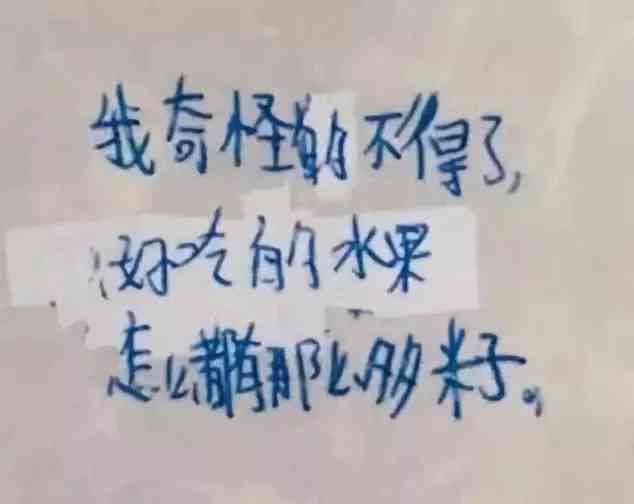 我奇怪的不得了,
好吃的水果
怎么都有那么多籽。